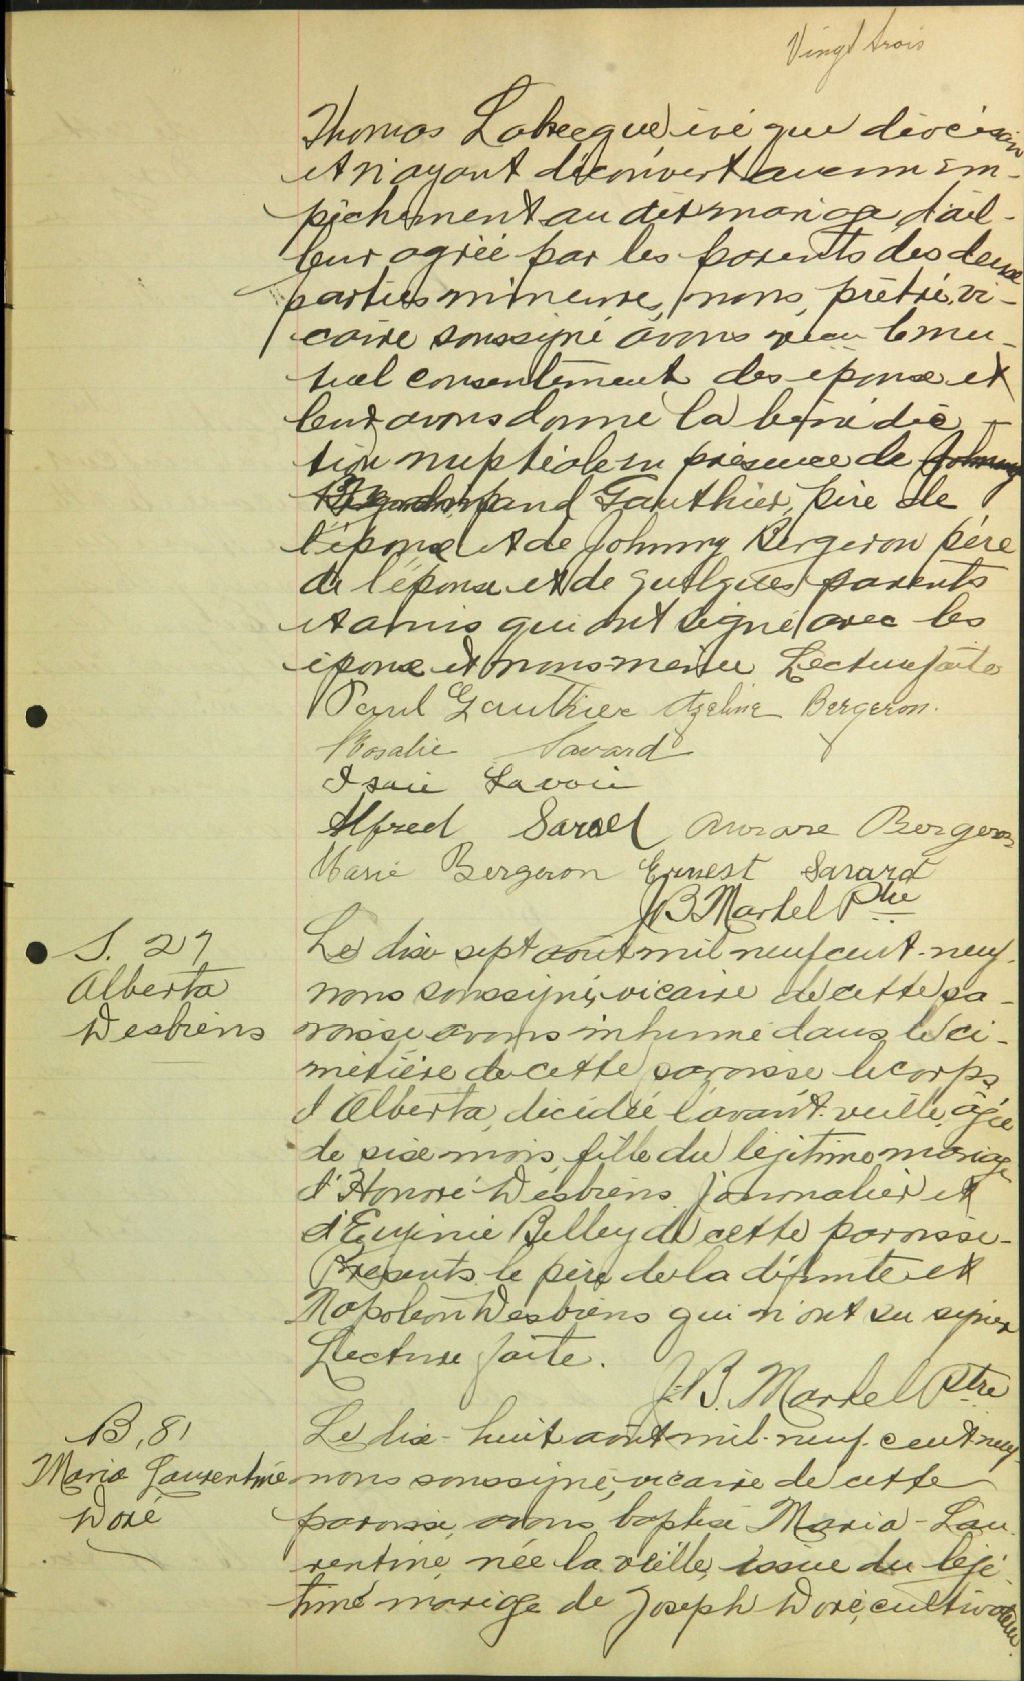 Vingt trois
Thomas Labrecque évêque diocésain
et n'ayant découvert aucun em-
pêchement au dit mariage d'ail-
leur agréé par les parents des deux
parties mineure, nous, prêtre, vi-
caire soussigné avons reçu le mu-
tuel consentement des époux et
leur avons donné la bénédic-
tion nuptiale en présence de Johnny
Gauthier, père de
l'époux et de Johnny Bergeron père
de l'épouse et de quelques parents
et amis qui ont signé avec les
époux et nous même Lecture faite
Paul Gauthier Azeline Bergeron.
Rosalie Savard
Isaie Lavoie
Alfred Aurore Bergeron
Marie Bergeron Ernest Savard
JB Martel Ptre
S. 27
Alberta
Desbiens
Le dix sept août mil neuf cent-neuf,
nous soussigné, vicaire de cette pa-
roisse avons inhumé dans le ci-
metière de cette paroisse le corps
d'Alberta, décédée l'avant-veille, âgée
de six mois, fille du légitime mariage
d'Honoré Desbiens journalier et
d'Eugénie Belley de cette paroisse-
Présents le père de la défunte et
Napoléon Desbiens qui n'ont su signer
Lecture faite.
J.B. Martel Ptre
B, 81
Maria Laurentine
Doré
Le dix-huit août mil-neuf-cent neuf
nous soussigné, vicaire de cette
paroisse, avons baptisé Maria-Lau-
rentine, née la veille, issue du légi-
time mariage de Joseph Doré, cultivateur.